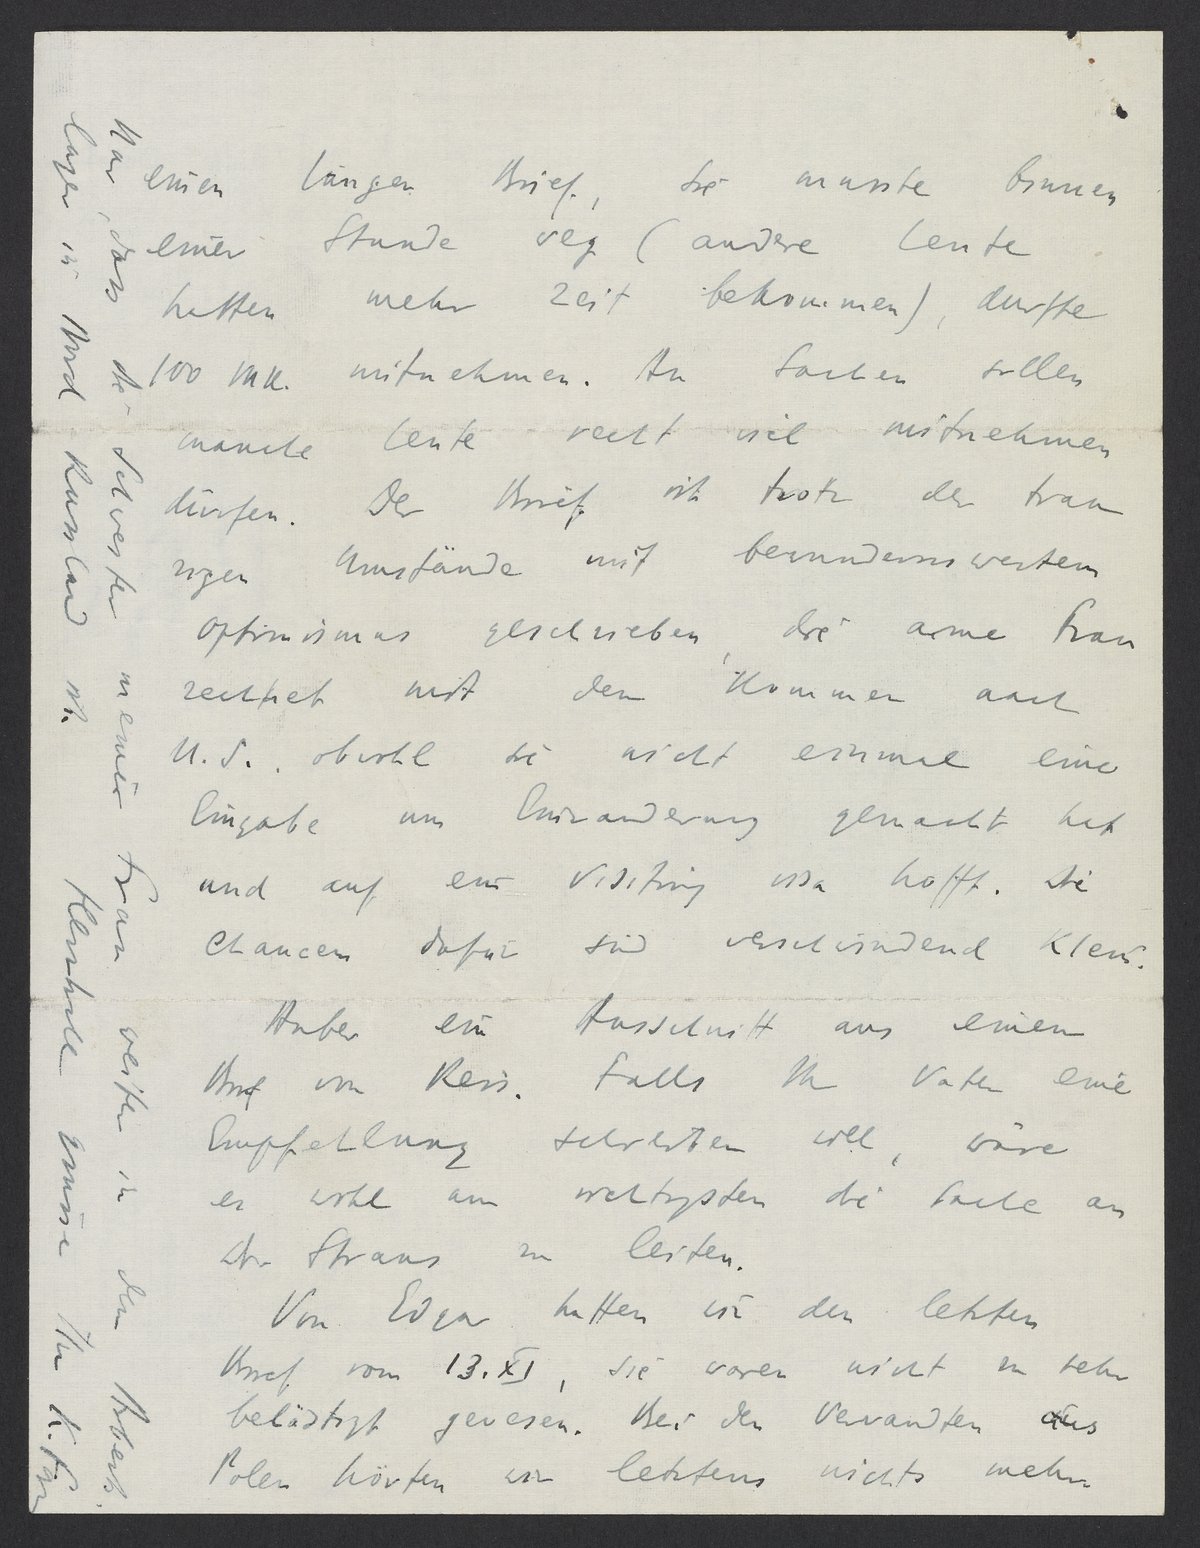 einen langen Brief, sie musste binnen
einer Stunde weg (andere Leute
hatten mehr Zeit bekommen), durfte
100 Mk. mitnehmen. An Sachen sollen
manche Leute recht viel mitnehmen
dürfen. Der Brief ist trotz der trau
rigen Umstände mit bewundernswertem
Optimismus geschrieben, die arme Frau
rechnet mit dem Kommen nach
U.S., obwohl sie nicht einmal eine
Eingabe um Einwanderung gemacht hat
und auf ein Visiting visa hofft. Die
Chancen dafür sind verschwindend klein.
Anbei ein Ausschnitt aus einem
Brief von Reis. Falls Ihr Vater eine
Empfehlung schreiben will, wäre
es wohl am wichtigsten die Sache an
Dr. Straus zu leiten.
Von Edgar hatten wir den letzten
Brief vom 13.XI, sie waren nicht zu sehr
belästigt gewesen. Bei den Verwandten aus
Polen hörten wir letztens nichts mehr
nur, dass die Schwester meiner Frau weiter in dem Arbeits
lager in Nord Russland ist. Herzliche Grüsse Ihr K.